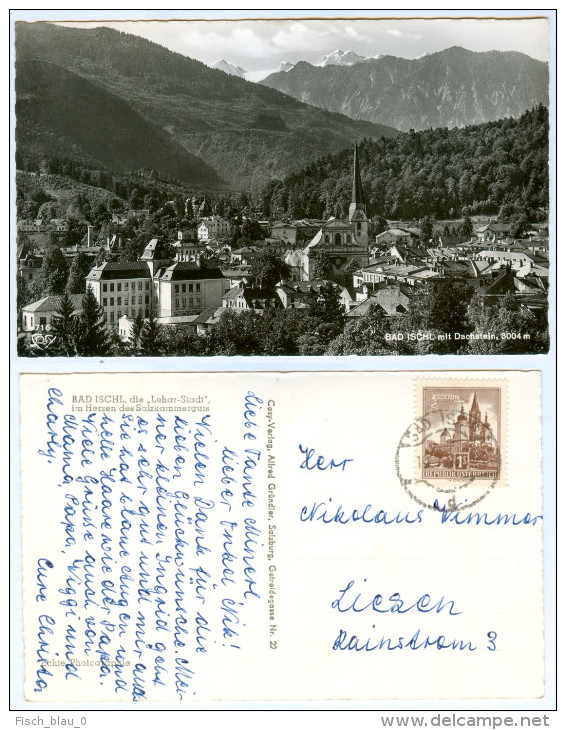 BAD ISCHL mit Dachstein, 3004 m
BAD ISCHL, die „Lehar-Stadt",
im Herzen des Salzkammerguts
Liebe Tante Minerl
lieber Onkel Nik!
Vielen Dank für die
lieben Glückwünsche. Mei-
ner kleinen Ingrid geht
es sehr gut und mir auch
Sie hat blaue Augen und
helle Haare wie der Papa.
Viele Grüsse auch von
Mama, Papa, Wiggi und
Charly,
Eure Christa
Echte Photographie
Cosy-Verlag, Alfred Gründler, Salzburg, Getreidegasse Nr. 20
REPUBLIK ÖSTERREICH
Herr
Nikolaus Wimmer
Liezen
Rainstrom 3
Fisch_blau_0
www.delcampe.net